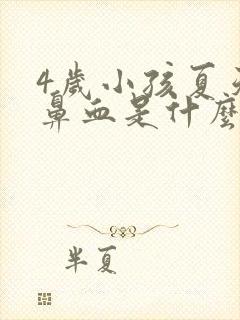 4歲小孩夏天
鼻血是什麼
半夏